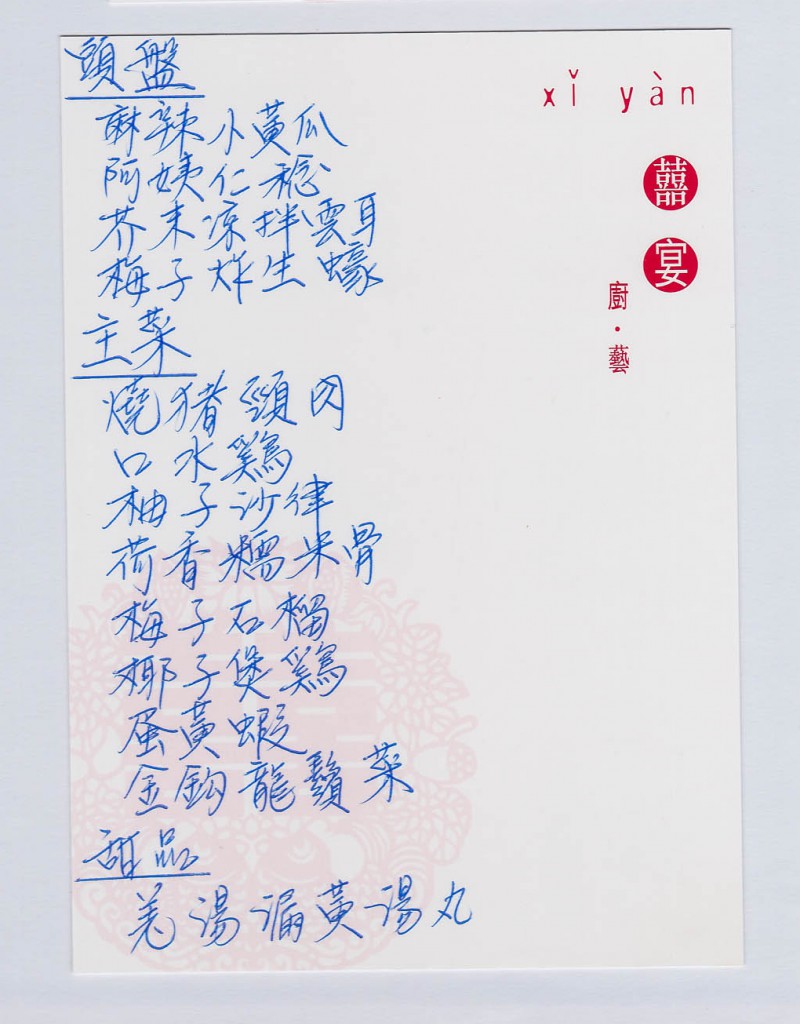 xǐ yàn
囍
宴
廚·藝
頭盤
麻辣小黃瓜
阿姨仁稔
芥末凉拌雲耳
梅子炸生蠔
主菜
燒猪頸肉
口水鷄
柚子沙律
荷香糯米骨
梅子石榴
椰子煲鷄
蛋黃蝦
金鈎龍鬚菜
甜品
羌湯漏黃湯丸